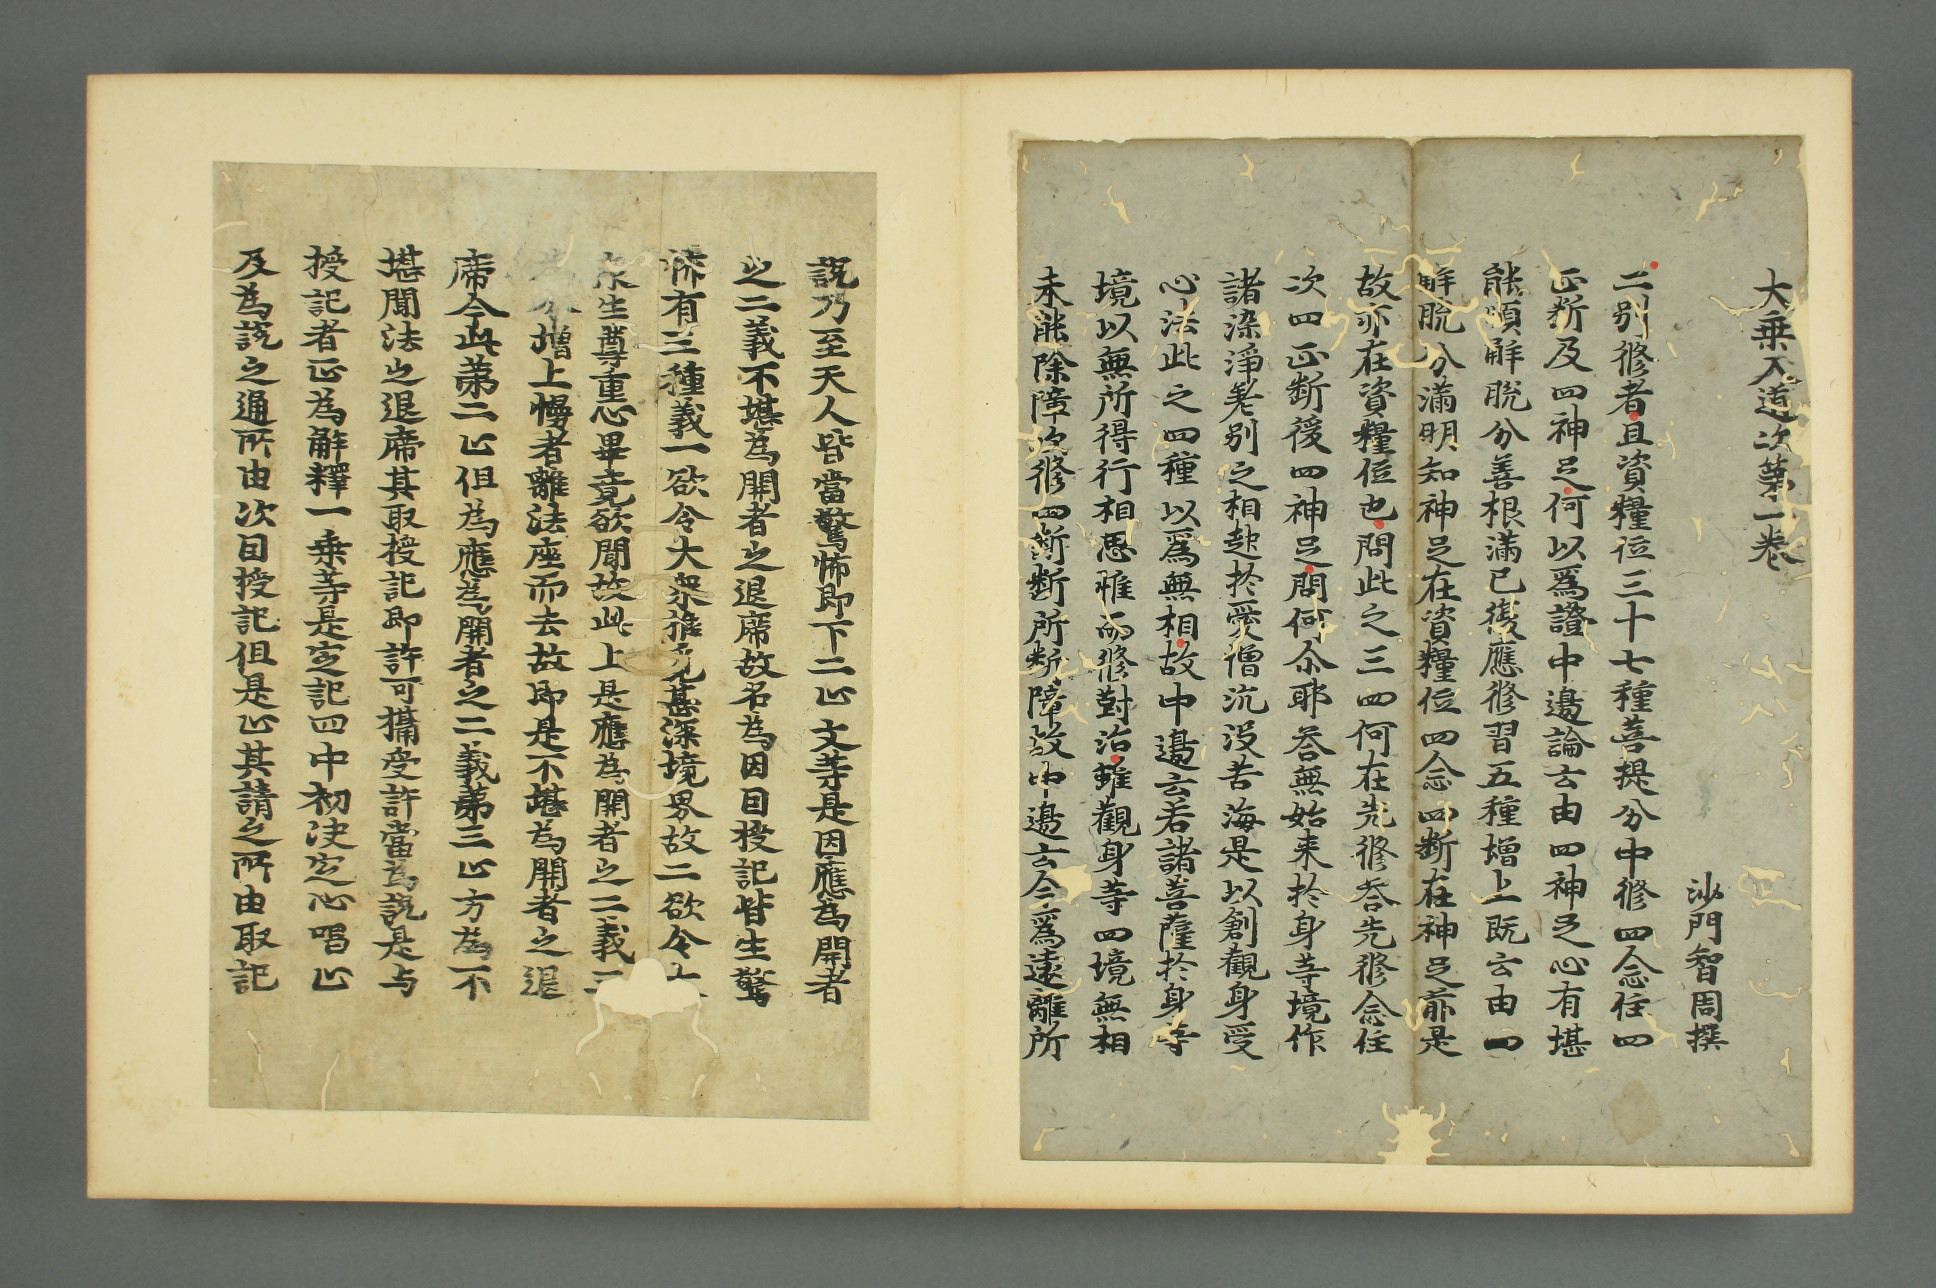 大乗入道次第一巻
沙門智周撰
二別修者且資糧位三十七種菩提分中修四念住四
正断及四神足何以爲證中邊論云由四神足心有堪
能順解脱分善根滿已復應修習五種增上既云由
解脱分滿明知神足在資糧位四念四断在神足前是
故亦在資糧位也問此之三四何在先修答先修念住
次四正断後四神足問何尒耶答無始来於身等境作
諸染淨差別之相起於愛憎沉没苦海是以創觀身受
心法此之四種以爲無相故中邊云若諸菩薩於身等
境以無所得行相思惟而修對治雖觀身等四境無相
未能除障次修四断断所断障故中邊云今爲遠離所
說乃至天人皆當驚怖即下二止文等是因應為開者
之二義不堪為開者之退席故名為因目授記皆生驚
怖有三種義一欲令大衆推究甚深境界故二欲令
衆生尊重心畢竟欲聞故此上是應為開者之二義三
增上慢者離法座而去故即是不堪為開者之退
席今此第二止但為應為開者之二義第三止方為不
堪聞法之退席其取授記即許可攝受許當為說是与
授記者正為解釋一乗等是定記四中初決定心唱止
及為說之通所由次目授記但是止其請之所由取記